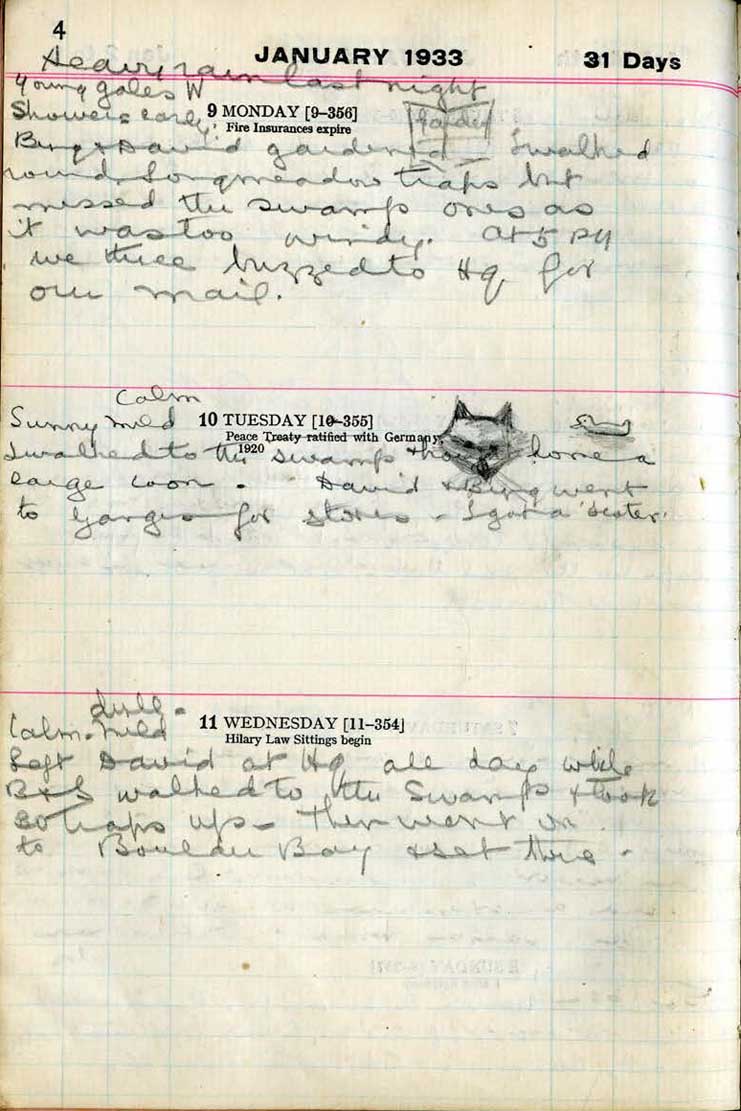 4
JANUARY 1933 31 Days
Heavy rain last night
Young gales W
Showers early. 9 MONDAY [9–356] Garden
Fire Insurances expire
Bung & David gardened I walked
round Longmeadow traps but
missed the swamp ones as
it was too windy. At 5 PM
we three buzzed to Hq for
our mail.
Calm
Sunny mild 10 TUESDAY [10–355]
Peace Treaty ratified with Germany,
1920
I walked to the swamp & home a
large coon. David & Bung went
to for stores - I got a
dull -
Calm. Mild 11 WEDNESDAY [11–354]
Hilary Law Sittings begin
Left David at Hq all day while
B & I walked to the Swamp & took
20 traps up - Then went on
to Boulder Bay & set three -